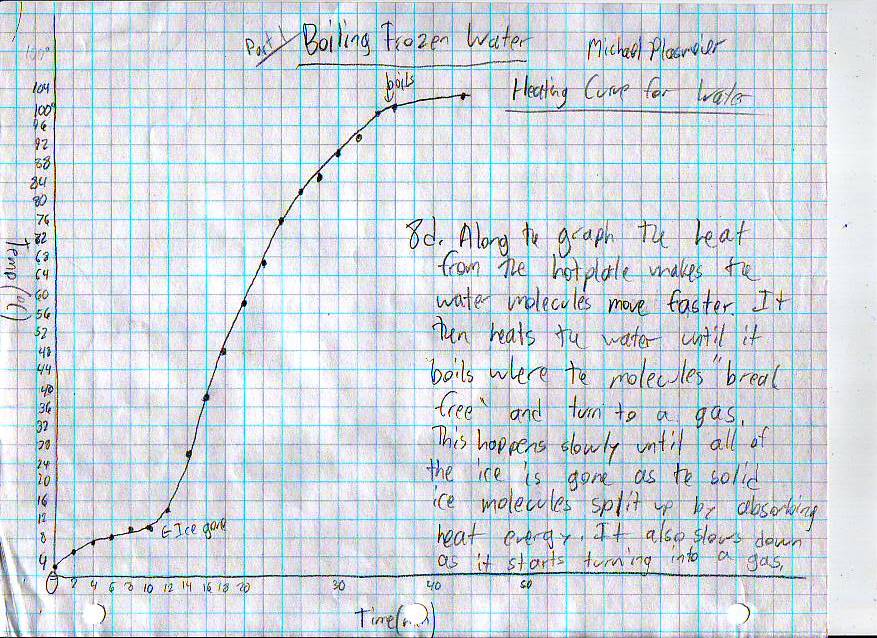 Part 1 Boiling Frozen Water
Michael Plasmeier
Heating Curve for Water
boils
100°
104
100°
96
92
88
84
80
76
72
68
64
60
56
52
48
44
40
36
32
28
24
20
16
12
8
4
0
Temp (°C)
←Ice gone
2 4 6 8 10 12 14 16 18 20 30 40 50
Time (min)
8d. Along the graph the heat
from the hotplate makes the
water molecules move faster. It
then heats the water until it
boils where the molecules "break
free" and turn to a gas.
This happens slowly until all of
the ice is gone as the solid
ice molecules split up by absorbing
heat energy. It also slows down
as it starts turning into a gas.